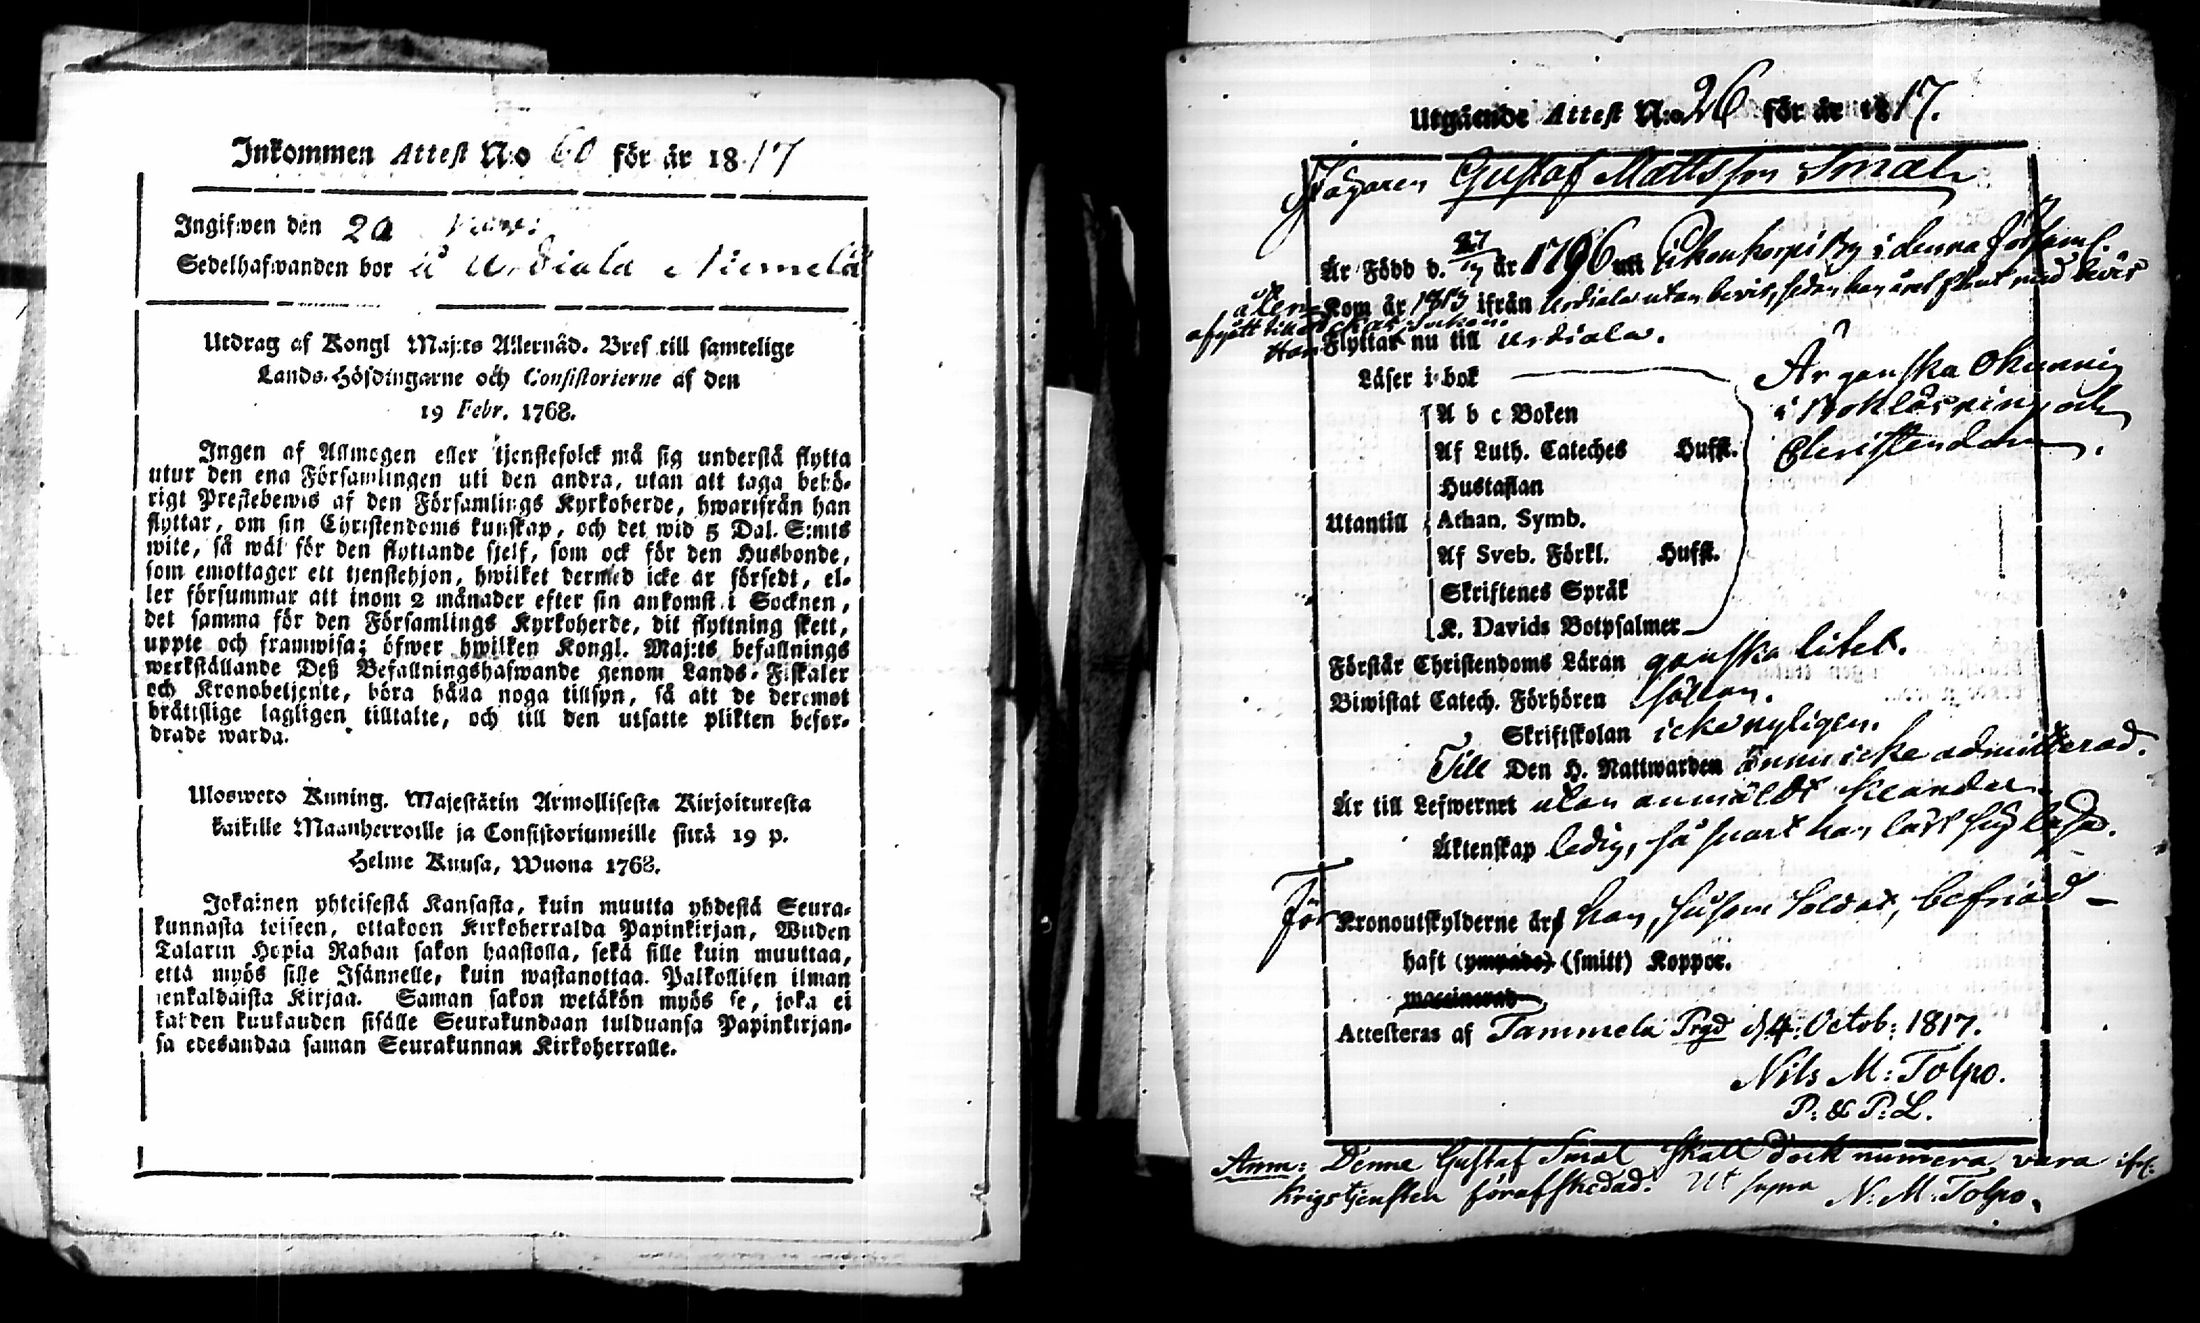 Inkommen Attest N:o 60 för år 1817
Ingifwen den 20
Sedelhafwanden bor i Urdiala Niemelä
Utdrag af Kongl Maj:ts Allernåd. Bref till samtelige
Lands-Höfdingarne och Consistorierne af den
19 Febr. 1768.
Ingen af Allmogen eller tjenstefolck må sig understå flytta
utur den ena Församlingen uti den andra, utan att taga behö-
rigt Prestebewis af den Församlings Kyrkoherde, hwarifrån han
flyttar, om sin Christendoms kunskap, och det wid 5 Dal. S:mts
wite, så wäl för den flyttande sjelf, som ock för den Husbonde,
som emottager ett tjenstehjon, hwilket dermed icke är försedt, el-
ler försummar att inom 2 månader efter sin ankomst i Socknen,
det samma för den Församlings Kyrkoherde, dit flyttning skett,
uppte och framwisa; öfwer hwilken Kongl. Maj:ts befallnings
werkställande Deß Befallningshafwande genom Lands-Fiskaler
och Kronobetjente, böra hålla noga tillsyn, så att de deremot
bråttslige lagligen tilltalte, och till den utsatte plikten befor-
drade warda.
Ulosweto Kuning. Majestätin Armollisesta Kirjoituresta
kaikille Maanherroille ja Consistoriumeille siitä 19 p.
Helme Kuusa, Wuona 1768.
Jokainen yhteisestä Kansasta, kuin muutta yhdestä Seura-
kunnasta toiseen, ottakoon Kirkoherralda Papinkirjan, Wiiden
Talarin Hopia Rahan sakon haastolla, sekä sille kuin muuttaa,
että myös sille Isännelle, kuin wastanottaa Palkollisen ilman
senkaldaista Kirjaa. Saman sakon wetäkön myös se, joka ei
kahden kuukauden sisälle Seurakundaan tulduansa Papinkirjan-
sa edesandaa saman Seurakunnan Kirkoherralle.
Utgående Attest N:o 26 för år 1817.
Jägaren Gustaf Mattsson Smal
Är Född d. 27/17 år 1796 uti Ukonkorpi By i denna Församl.
Kom år 1813 ifrån Urdiala utan bevis, sedan han året förut med bevis
afgått till
Han Flyttar nu till Urdiala.
Läser i bok
Är ganska okunnig
i Bokläsning och
Christendom.
A b c Boken
Af Luth. Cateches Hufst.
Hustaflan
Utantill Athan. Symb.
Af Sveb. Förkl. Hufst.
Skriftenes Språk
K. Davids Botpsalmer
Förstår Christendoms Läran ganska litet.
Biwistat Catech. Förhören sällan.
Skriftskolan icke nyligen.
Till Den H. Nattwarden ännu icke admitterad.
Är till Lefwernet utan anmäldt klander.
Äktenskap ledig, så snart han lärt sig läsa.
För Kronoutskylderne är han, såsom Soldat, befriad –
haft (ympade) (smitt) Koppor.
waccinerad
Attesteras af Tammela Prgd d 4. Octob: 1817.
Nils M: Tolpo.
P: & P: L.
Anm: Denne Gustaf Smal skall dock numera vara ifr:
Krigstjensten förafskedad. Ut supra N: M: Tolpo.